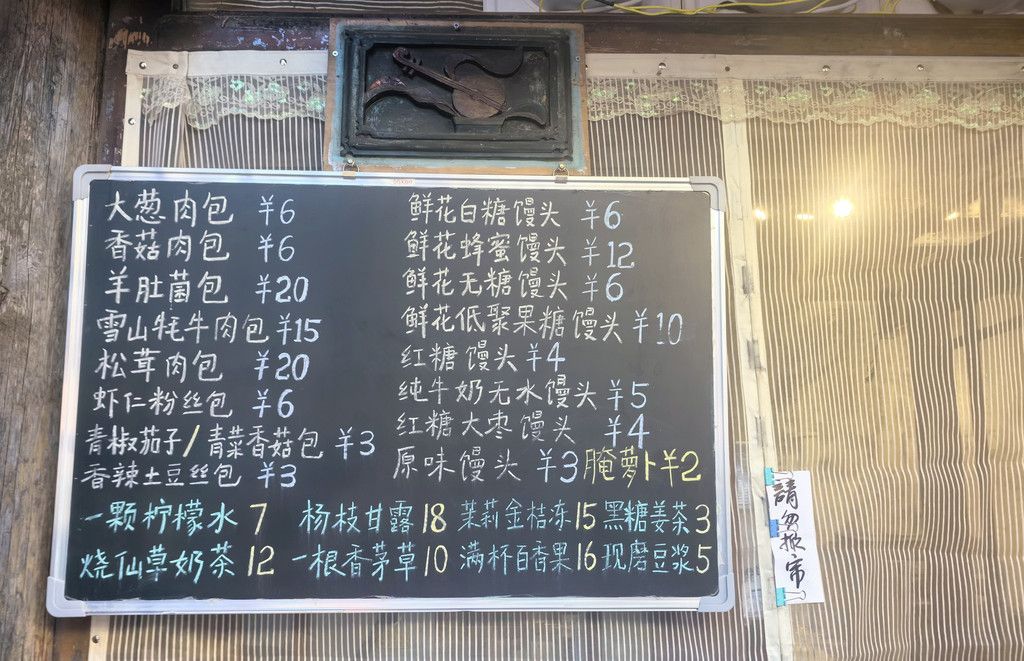 大葱肉包 ¥6
香菇肉包 ¥6
羊肚菌包 ¥20
雪山牦牛肉包 ¥15
松茸肉包 ¥20
虾仁粉丝包 ¥6
青椒茄子/青菜香菇包 ¥3
香辣土豆丝包 ¥3
鲜花白糖馒头 ¥6
鲜花蜂蜜馒头 ¥12
鲜花无糖馒头 ¥6
鲜花低聚果糖馒头 ¥10
红糖馒头 ¥4
纯牛奶无水馒头 ¥5
红糖大枣馒头 ¥4
原味馒头 ¥3 腌萝卜¥2
一颗柠檬水 7 杨枝甘露 18 茉莉金桔冻 15 黑糖姜茶 3
烧仙草奶茶 12 一根香茅草 10 满杯百香果 16 现磨豆浆 5
請勿掀帘